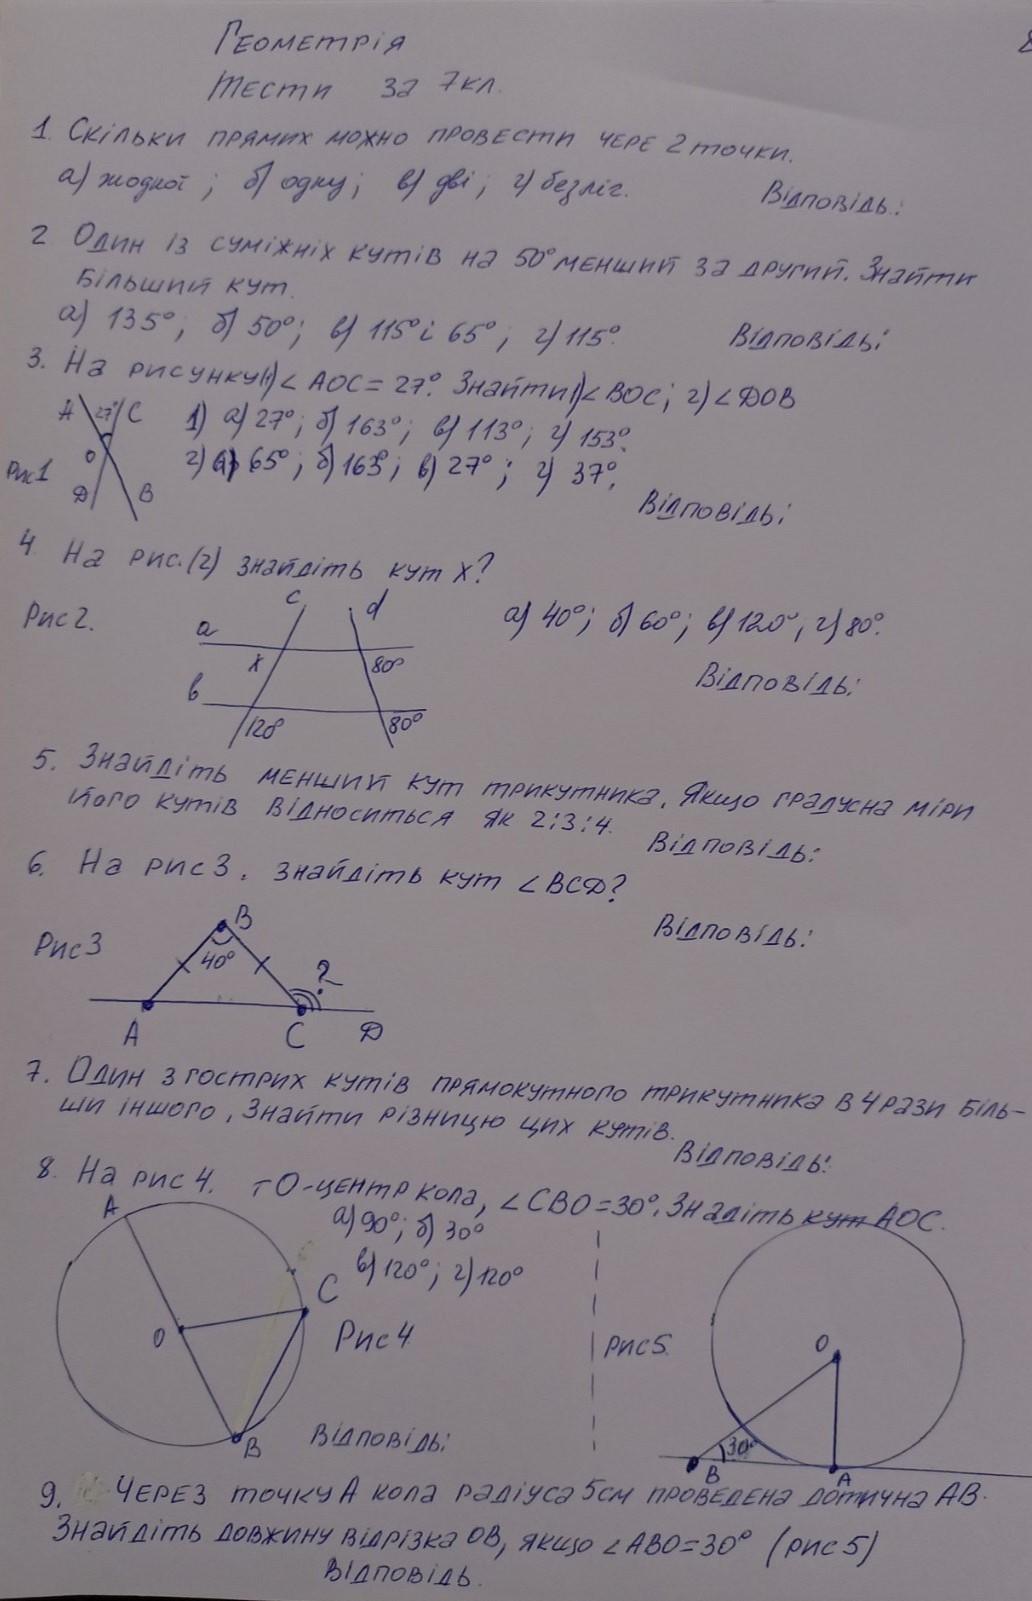 Геометрія
Тести за 7кл.
1. Скільки прямих можно провести чере 2 точки.
а) жодної; б) одну; в) дві; г) безліг.
Відповідь:
2 Один із суміжніх кутів на 50° менший за другий. Знайти
більший кут.
а) 135°; б) 50°; в) 115° і 65°; г) 115°
Відповідь:
3. На рисунку(1) ∠AOC = 27°. Знайти 1)∠BOC; 2)∠DOB
1) а) 27°; б) 163°; в) 113°; г) 153°.
2) а) 65°; б) 163°; в) 27°; г) 37°.
A 27° C
O
Рис1
D B
Відповідь:
4. На рис.(2) знайдіть кут x?
Рис 2.
c d
a
x 80°
b
120° 80°
а) 40°; б) 60°; в) 120°, г) 80°.
Відповідь:
5. Знайдіть менший кут трикутника, якщо градусна міри
його кутів відноситься як 2:3:4.
Відповідь:
6. На рис 3. знайдіть кут ∠BCD?
Відповідь:
Рис 3
B
40°
?
A C D
7. Один з гострих кутів прямокутного трикутника в 4 рази біль-
ши іншого, Знайти різницю цих кутів.
Відповідь:
8. На рис 4. т О-центр кола, ∠CBO=30°. Знадіть кут AOC.
а) 90°; б) 30°
в) 120°; г) 120°
A
C
O
Рис 4
B
Відповідь:
Рис 5.
O
30°
B A
9. Через точку А кола радіуса 5см проведена дотична AB.
Знайдіть довжину відрізка OB, якщо ∠ABO=30° (рис 5)
Відповідь.